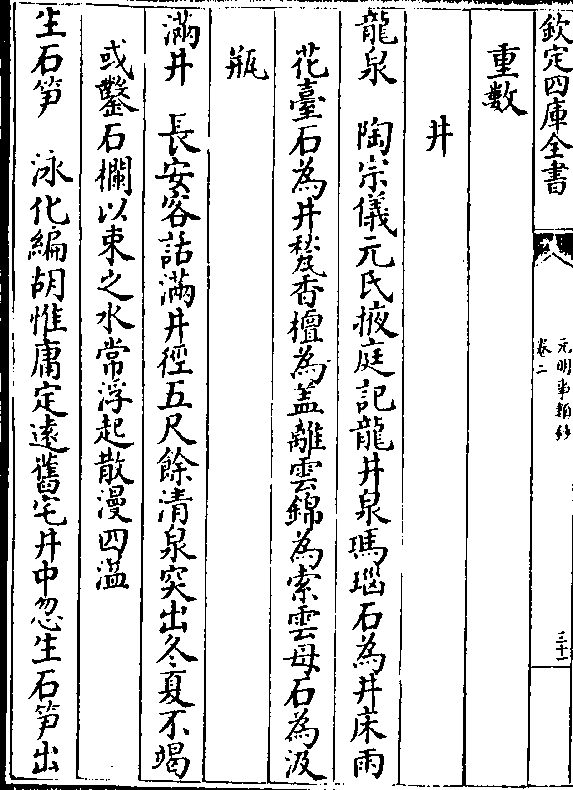 欽定四庫全書
元明事類鈔
卷二
三十二
重數
井
龍泉 陶宗儀元氏掖庭記龍井泉瑪瑙石為井床雨
花臺石為井甃香檀為盖離雲錦為索雲母石為汲
瓶
滿井 長安客話滿井徑五尺餘清泉突出冬夏不竭
或鑿石欄以束之水常浮起散漫四溢
生石笋 泳化編胡惟庸定遠舊宅井中忽生石笋出